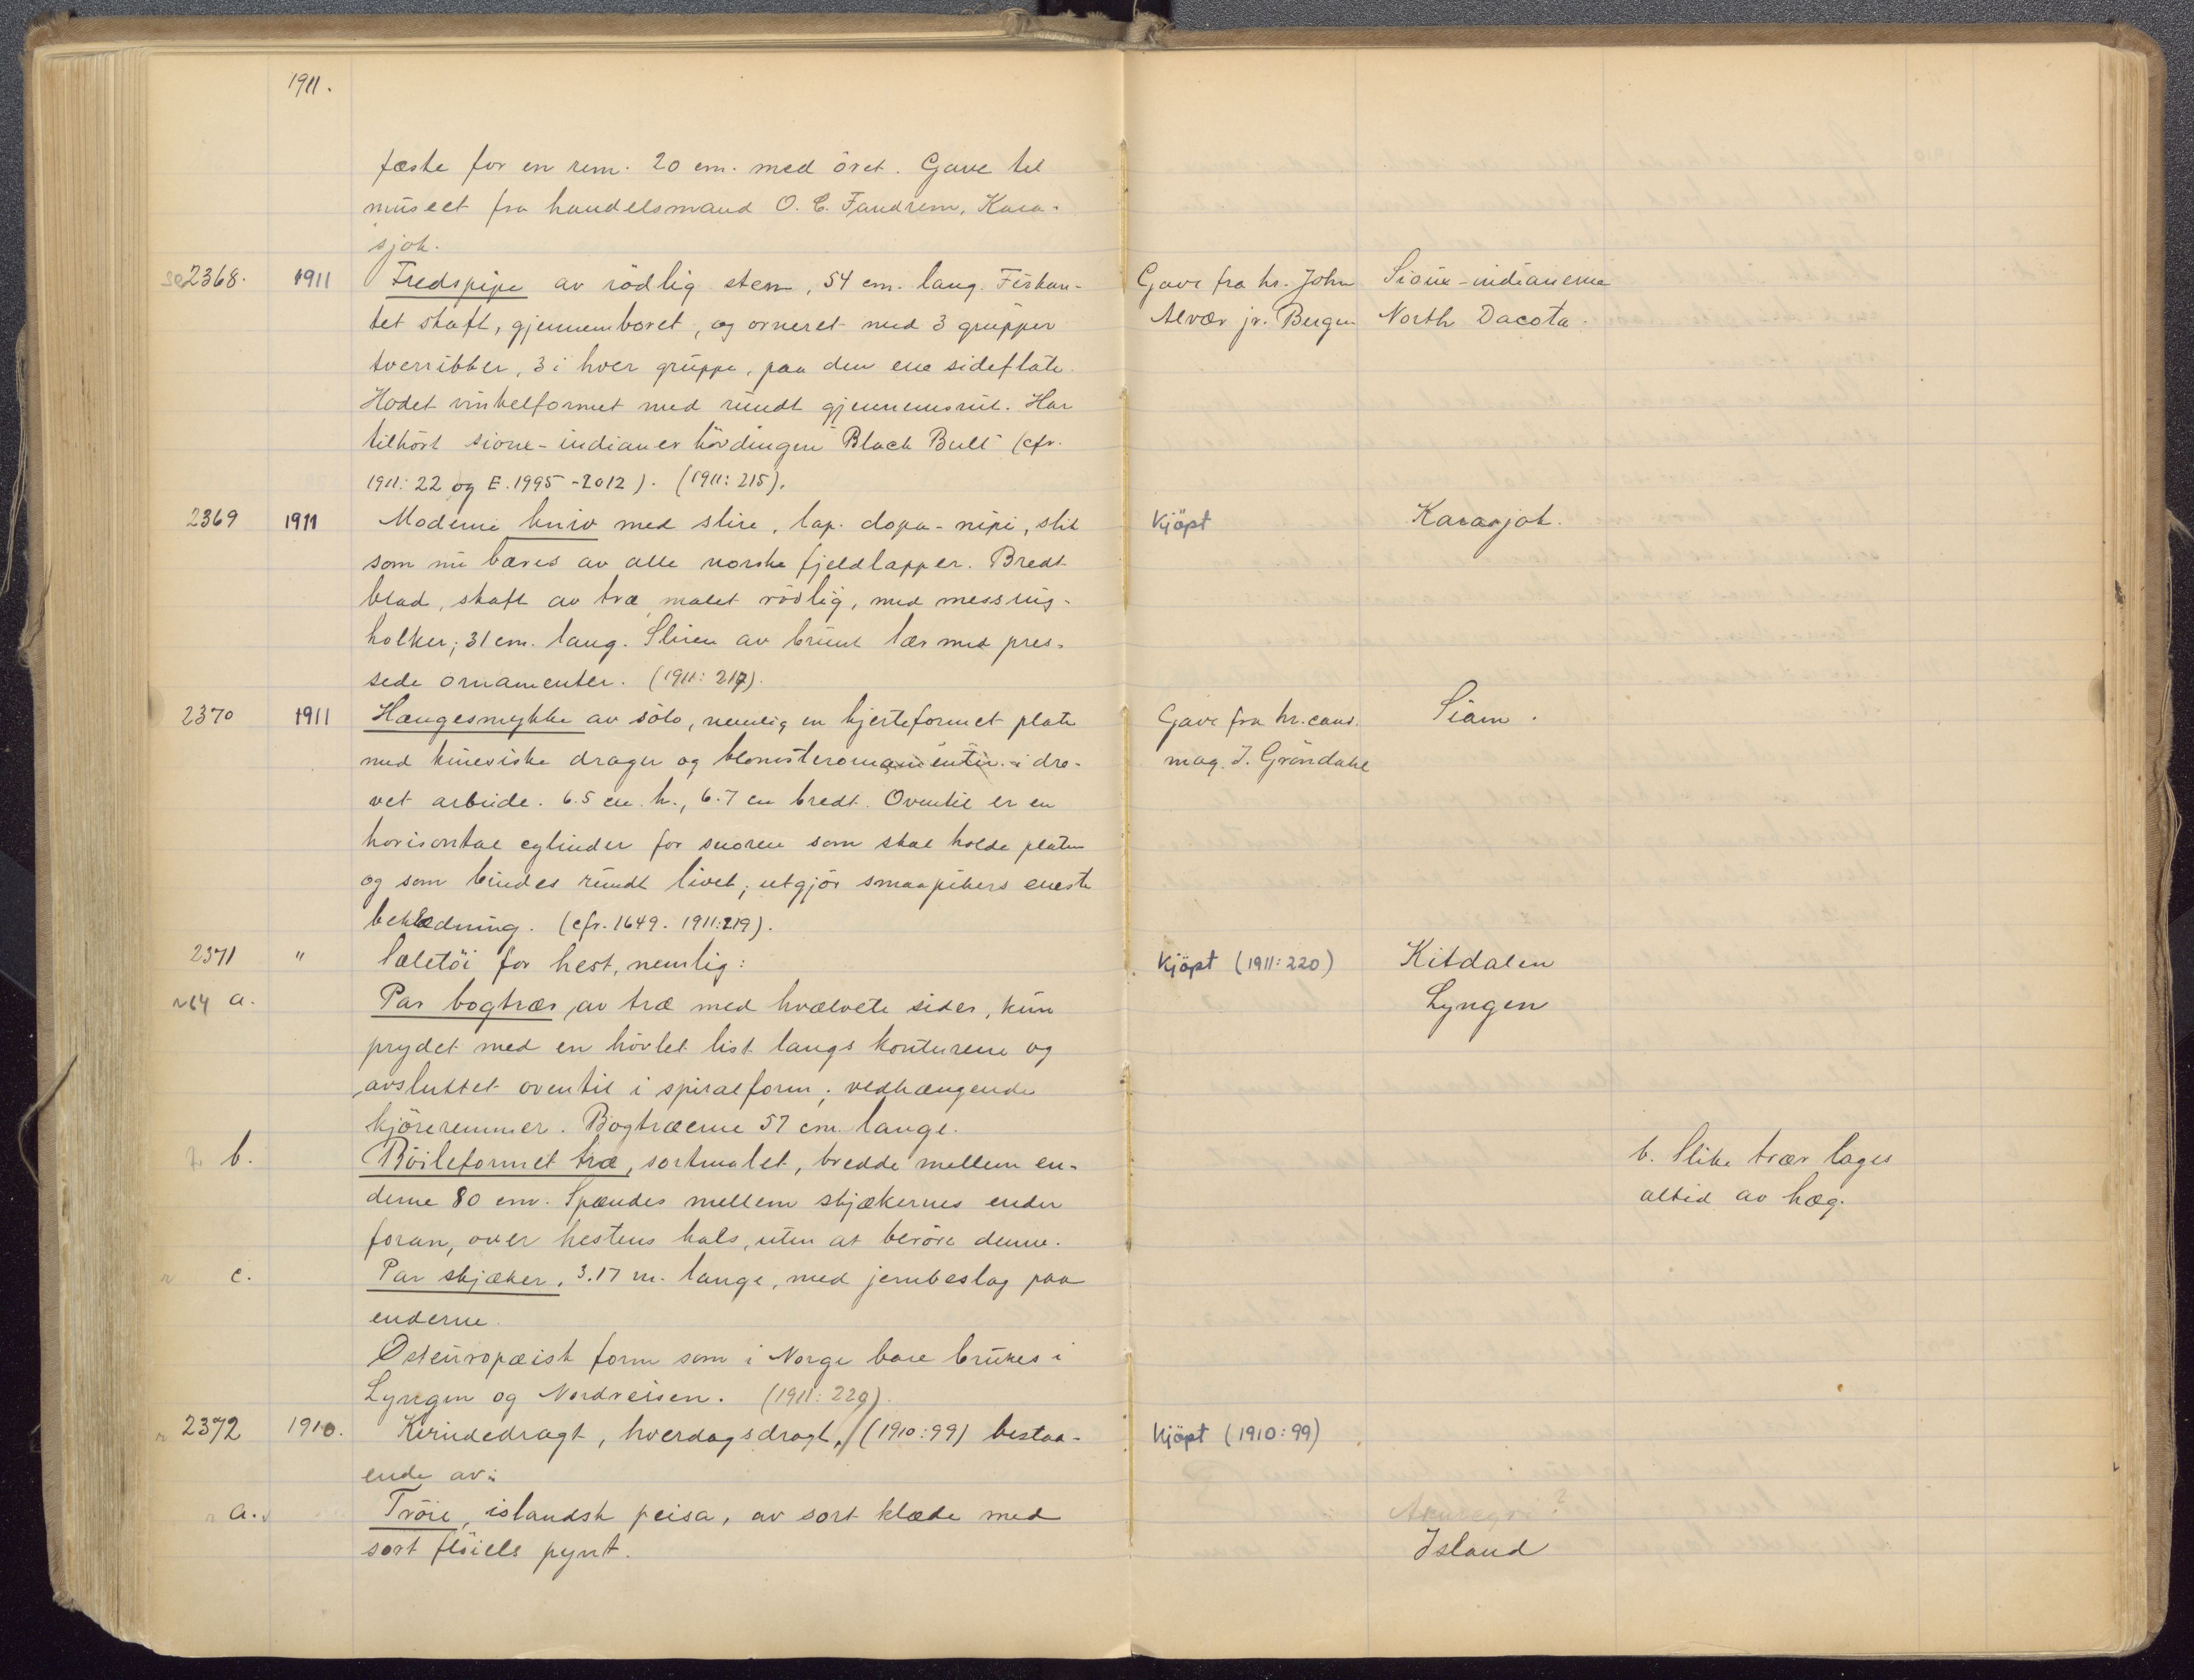 1911.
fæste for en rem. 20 cm. med öret. Gave til
museet fra handelsmand O. C. Fandrem, Kara-
sjok.
2368. 1911 Fredspipe av rödlig sten, 54 cm. lang. Firkan- Gave fra hr. John Sioux-indianerne
tet skaft, gjennemboret, og orneret med 3 grupper Alvær jr. Bergen North Dacota.
tverribber, 3 i hver gruppe, paa den ene sideflate.
Hodet vinkelformet med rundt gjennemsnit. Har
tilhört sioux-indianer hövdingen "Black Bull" (cfr.
1911: 22 og E. 1995-2012). (1911: 215).
2369 1911 Moderne kniv med slire, lap. dopa-nipi, slik kjöpt Karasjok.
som nu bæres av alle norske fjeldlapper. Bredt
blad, skaft av træ malet rödlig, med messing-
holker; 31 cm. lang. Sliren av brunt lær med pres-
sede ornamenter. (1911: 217).
2370 1911 Hængesmykke av sölv, nemlig en hjerteformet plate Gave fra hr. cand. Siam.
med kinesiske drager og blomsterornamenter i dre- mag. J. Gröndahl
vet arbeide. 6.5 cm. h., 6.7 cm bredt. Oventil er en
horisontal cylinder for snoren som skal holde platen
og som bindes rundt livet; utgjör smaapikers eneste
beklædning. (cfr. 1649. 1911:219).
2371 " Sæletöi for hest, nemlig: kjöpt (1911:220) Kitdalen
a. Par bogtrær av træ med hvælvete sider, kun Lyngen
prydet med en hövlet list langs konturene og
avsluttet oventil i spiralform; vedhængende
kjöreremmer. Bogtræerne 57 cm. lange.
b. Böileformet træ, sortmalet, bredde mellem en- b. Slike trær lages
derne 80 cm. Spændes mellem skjækernes ender altid av hæg.
foran, over hestens hals, uten at beröre denne.
c. Par skjæker, 3.17 m. lange, med jernbeslag paa
enderne.
Østeuropæisk form som i Norge bare brukes i
Lyngen og Nordreisen. (1911: 220).
2372 1910. Kvindedragt, hverdagsdragt, (1910:99) bestaa- kjöpt (1910:99)
ende av:
a. Tröie, islandsk peisa, av sort klæde med Akureyri?
sort flöiels pynt. Island